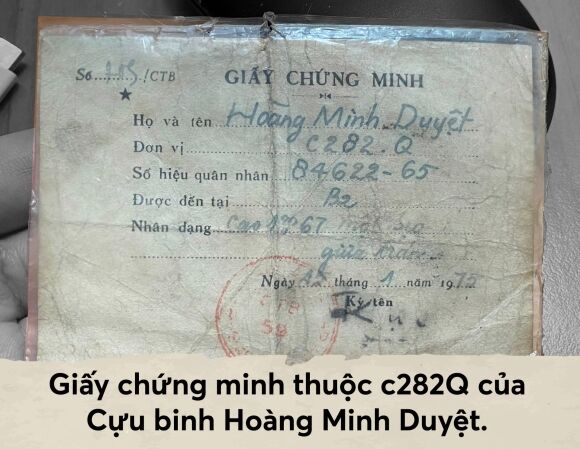 Số.........../CTB
GIẤY CHỨNG MINH
Họ và tên Hoàng Minh Duyệt
Đơn vị C282.Q
Số hiệu quân nhân 84622-65
Được đến tại B2
Nhân dạng cao 1m67
giữa trán
Ngày 12 tháng 1 năm 1975
Ký tên
CTB
Giấy chứng minh thuộc c282Q của
Cựu binh Hoàng Minh Duyệt.